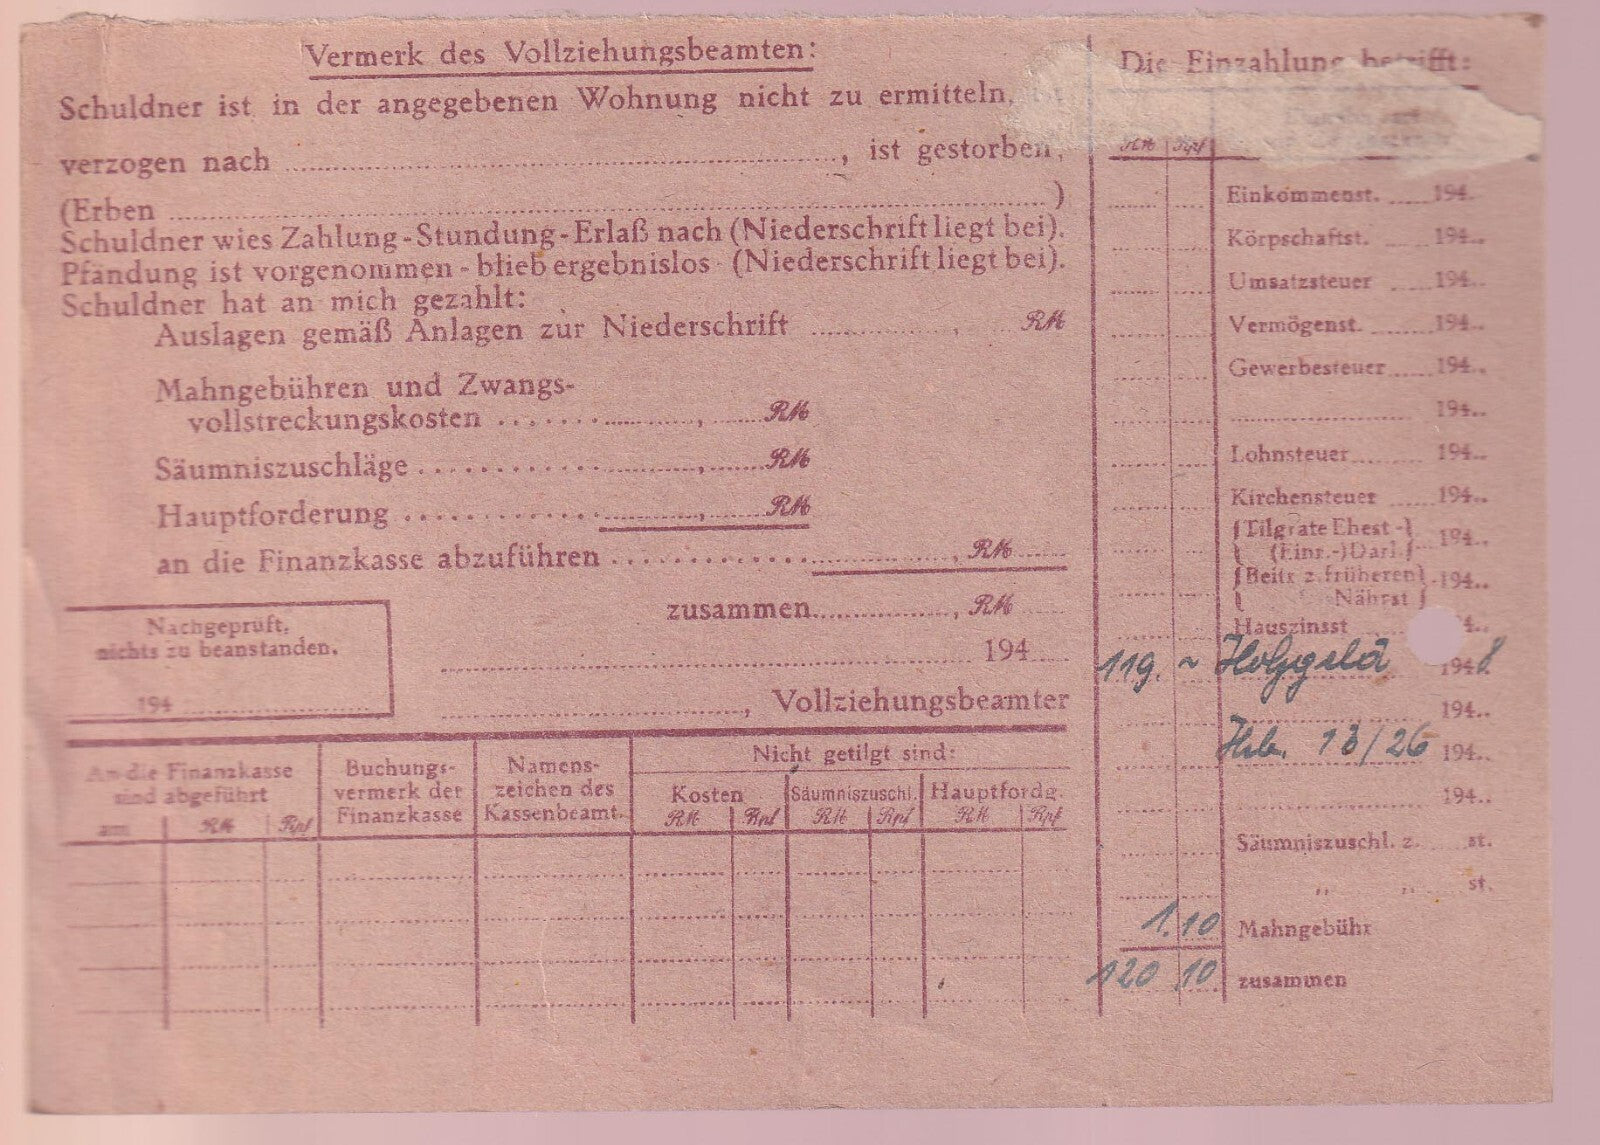 Vermerk des Vollziehungsbeamten:
Schuldner ist in der angegebenen Wohnung nicht zu ermitteln,
verzogen nach ........, ist gestorben,
(Erben ........)
Schuldner wies Zahlung-Stundung-Erlaß nach (Niederschrift liegt bei).
Pfändung ist vorgenommen - blieb ergebnislos - (Niederschrift liegt bei).
Schuldner hat an mich gezahlt:
Auslagen gemäß Anlagen zur Niederschrift ........, .... RM
Mahngebühren und Zwangs-
vollstreckungskosten ........, .... RM
Säumniszuschläge ........, .... RM
Hauptforderung ........, .... RM
an die Finanzkasse abzuführen ........, RM ....
zusammen ........, RM ....
Nachgeprüft,
nichts zu beanstanden.
194 ........
........ 194 ....
........, Vollziehungsbeamter
An die Finanzkasse
sind abgeführt
am RM Rpf
Buchungs-
vermerk der
Finanzkasse
Namens-
zeichen des
Kassenbeamt.
Nicht getilgt sind:
Kosten Säumniszuschl. Hauptfordg.
RM Rpf RM Rpf RM Rpf
Die Einzahlung betrifft:
RM Rpf
Einkommenst. .... 194..
Körpschaftst. .... 194..
Umsatzsteuer .... 194..
Vermögenst. .... 194..
Gewerbesteuer .... 194..
........ 194..
Lohnsteuer .... 194..
Kirchensteuer .... 194..
(Tilgrate Ehest.-)
(Einr.-)Darl.) .. 194..
(Beitr. z. früheren)
Nährst.) .. 194..
Hauszinsst 4..
119. ~ Holzgeld 1948
194..
Hb. 13/26 194..
194..
Säumniszuschl. z. .... st.
„ „ .... st.
1.10 Mahngebühr
120 10 zusammen